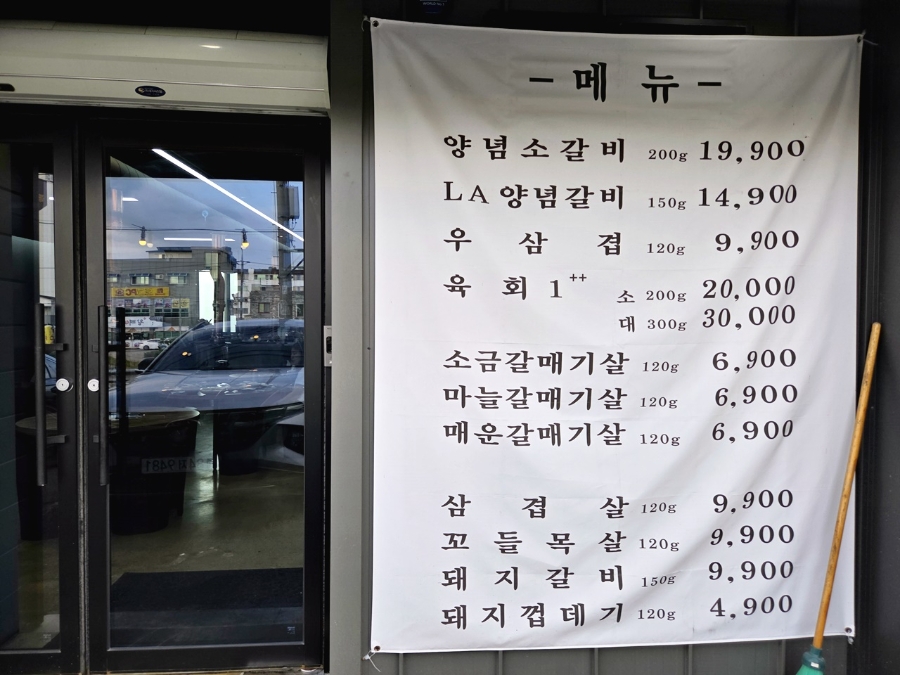 - 메 뉴 -
양념소갈비 200g 19,900
LA 양념갈비 150g 14,900
우 삼 겹 120g 9,900
육 회 1++ 소 200g 20,000
대 300g 30,000
소금갈매기살 120g 6,900
마늘갈매기살 120g 6,900
매운갈매기살 120g 6,900
삼 겹 살 120g 9,900
꼬 들 목 살 120g 9,900
돼 지 갈 비 150g 9,900
돼지껍데기 120g 4,900